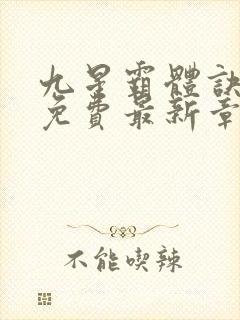 九星霸體訣
免費最新章
不能喫辣